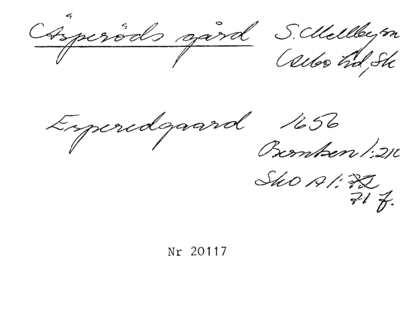 Äsperöds gård S. Mellby sn
Albo hd, Sk
Esperedgaard 1656
1:210
Sk O A1: 72
71 f.
Nr 20117